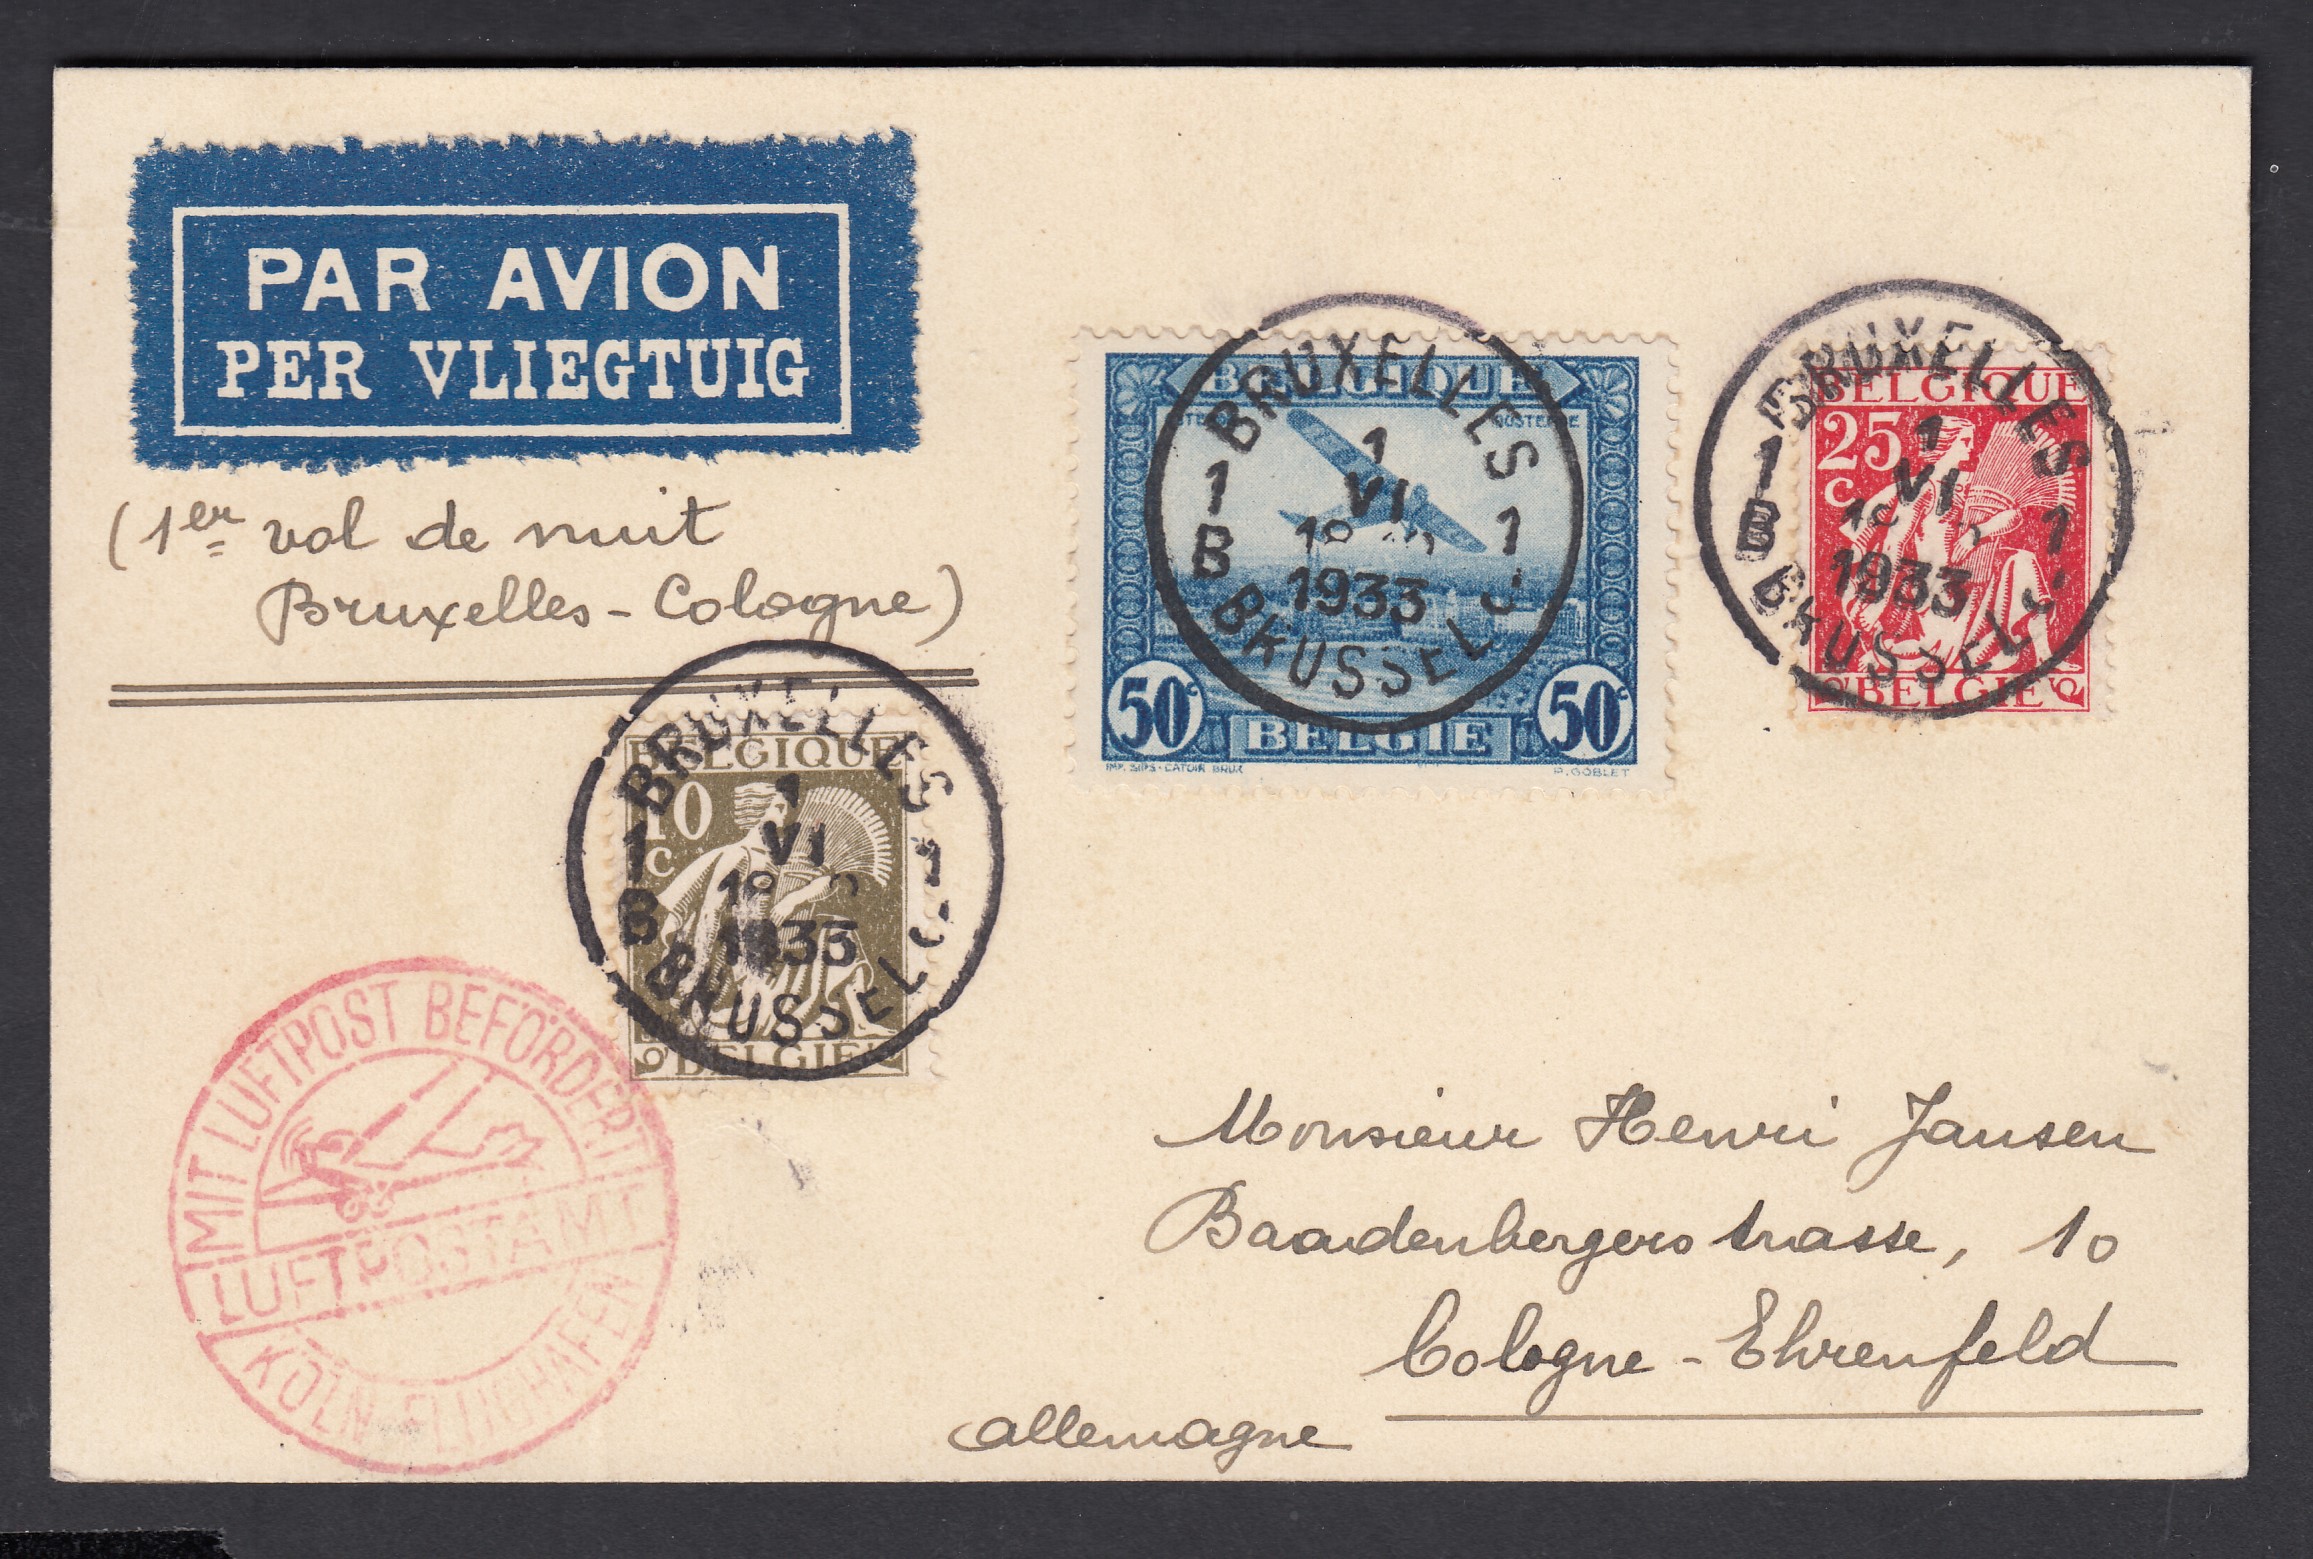 PAR AVION
PER VLIEGTUIG
(1er vol de nuit
Bruxelles - Cologne)
BELGIQUE
OSTENDE
50c 50c
BELGIE
IMP. SIPS. CATOIR BRUX
P. GOBLET
BRUXELLES
1 1
1
VI
B
1933
BRUSSEL
BELGIQUE
25
c
BELGIE
BRUXELLES
1 1
1
VI
B
1933
BRUSSEL
BELGIQUE
10
c
BELGIE
BRUXELLES
1 1
1
VI
B
1933
BRUSSEL
MIT LUFTPOST BEFÖRDERT
LUFTPOSTAMT
KÖLN FLUGHAFEN
Monsieur Henri Jansen
Baadenbergerstrasse, 10
Cologne - Ehrenfeld
allemagne